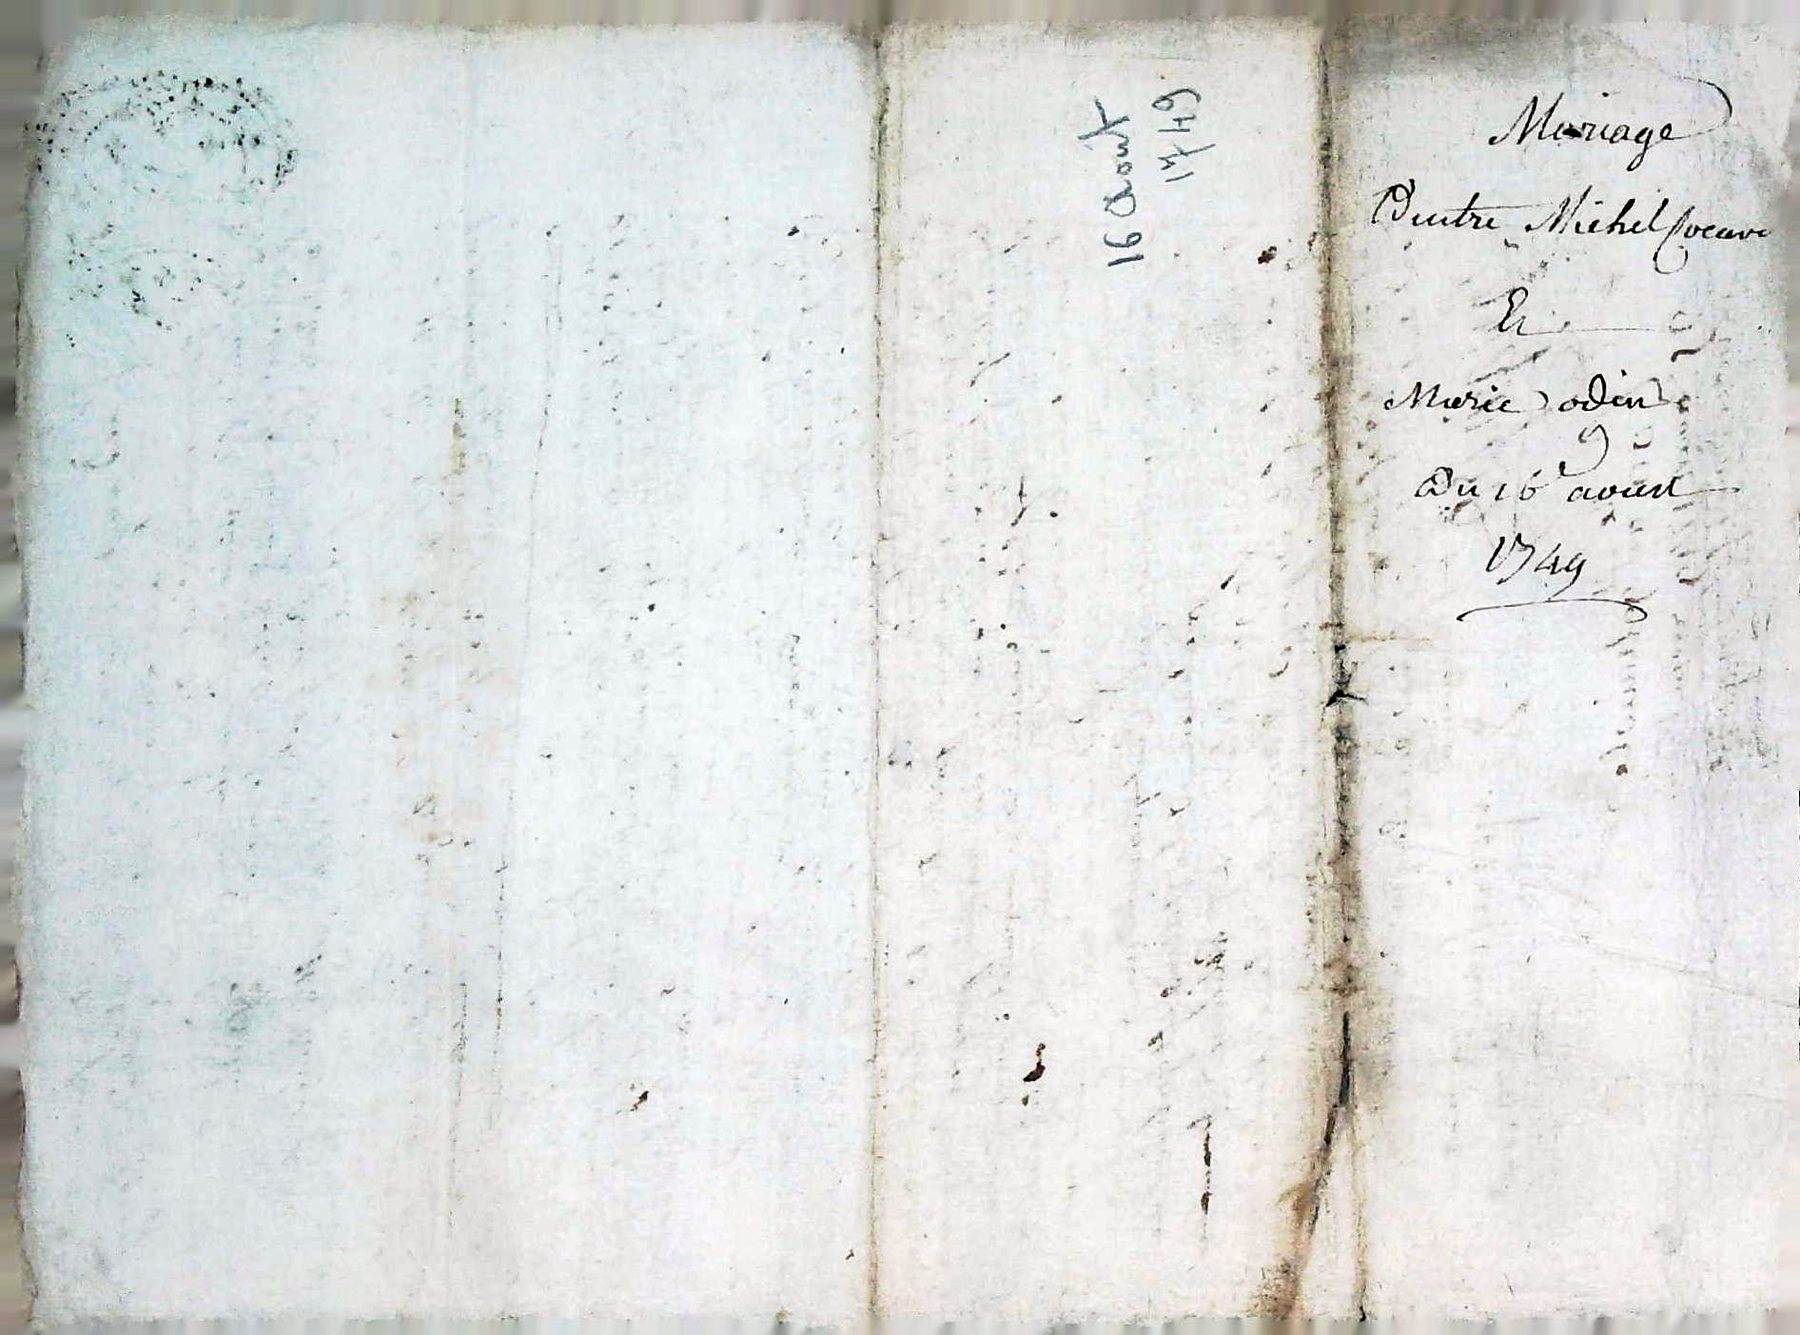 16 Aout
1749
Mariage
Dentre Michel
Et
Marie odin
Du 16 aoust
1749